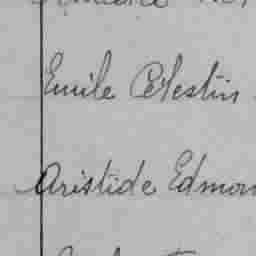 Emile Célestin
Aristide Edmon